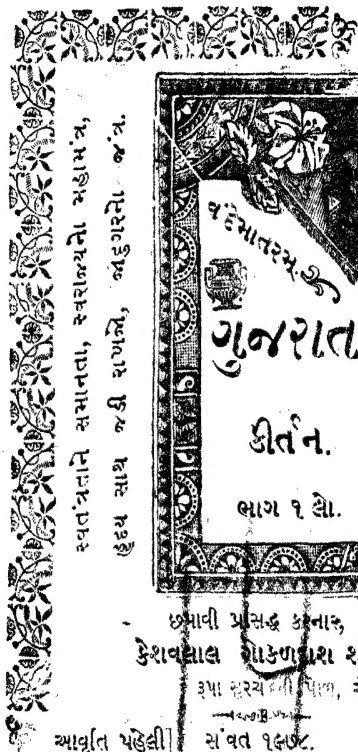 સ્વતંત્રતાને સમાનતા, સ્વરાજ્યનો મહામંત્ર,
હૃદય સાથ જડી રાખજો,
વંદેમાતરમ્
ગુજરાત
કીર્તન.
ભાગ ૧ લો.
છપાવી પ્રસિદ્ધ કરનાર,
કેશવલાલ ગોકળદાશ
રૂપા સુરચંદની પોળ,
આવૃતિ પહેલી સંવત ૧૯૭૮.